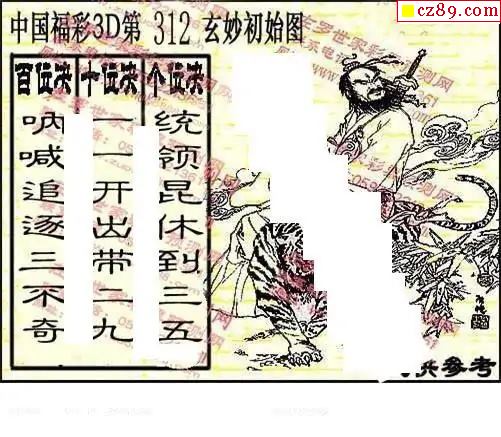 cz89.com
中国福彩3D第 312 玄妙初始图
百位决 十位决 个位决
呐喊追逐三不奇
一一开出带二九
统领昆休到三五
供参考